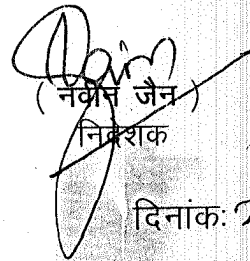 ( नवीन जैन )
निदेशक
दिनांक: